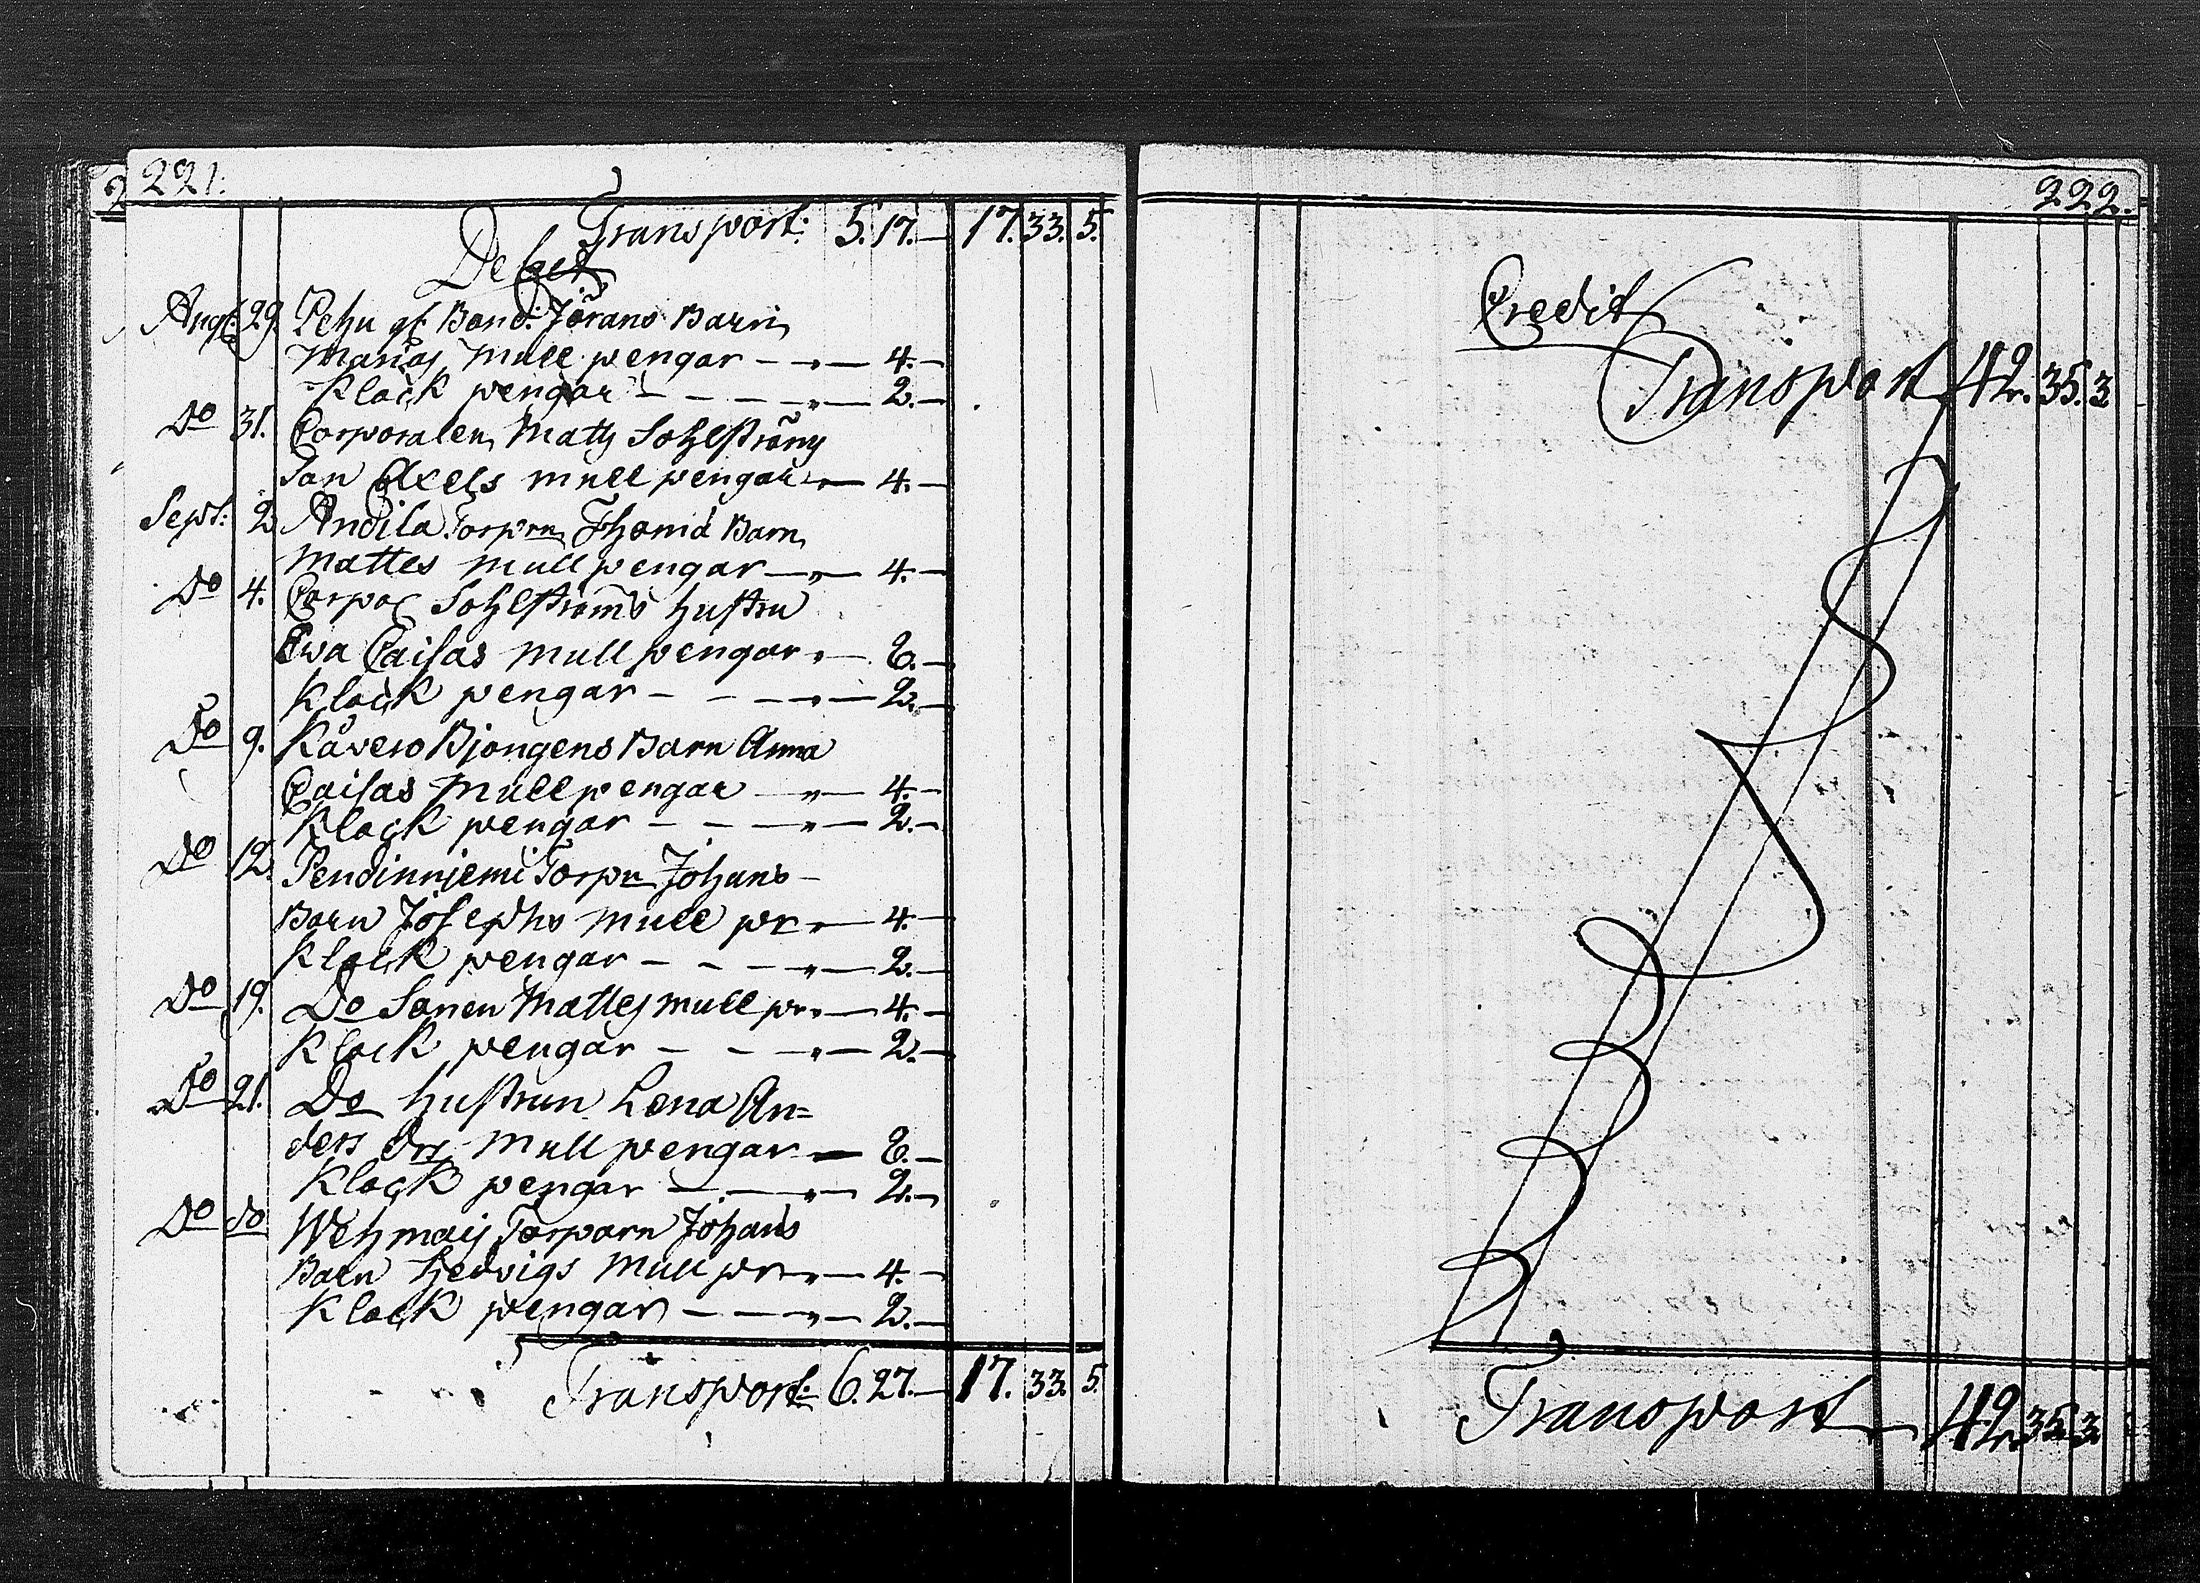 221.
Transport: 5. 17. — 17. 33. 5.
Debet
Aug: 29. Pehu gl. Bond: Jörans Barn
Marias mull pengar — " — 4. —
Klock pengar — — — " — 2. —
Do 31. Corporalen Matts Sohlström
Son Axels mull pengar " — 4. —
Sept: 2 Andila Torprn Johans Barn
Mattes mull pengar — " — 4. —
Do 4. Corpor Sohlströms hustru
Ewa Caisas mull pengar " — 8. —
Klock pengar — — — " — 2. —
Do 9. Kåvero Bjongens Barn Anna
Caisas mull pengar — " — 4. —
Klock pengar — — — " — 2. —
Do 12. Pendinniemi Torpn Johans
Barn Josephs mull pr " — 4. —
Klock pengar — — — " — 2. —
Do 19. Do Sonen Mattes mull pr " — 4. —
Klock pengar — — — " — 2. —
Do 21. Do hustrun Lena An=
ders drs mull pengar — 8. —
Klock pengar — — " — 2. —
Do do Wehmaij Torparn Johans
Barn Hedvigs mull pr " — 4. —
Klock pengar — — " — 2. —
Transport: 6. 27. — 17. 33. 5.
222.
Credit
Transport 42. 35. 3
Transport 42. 35. 3